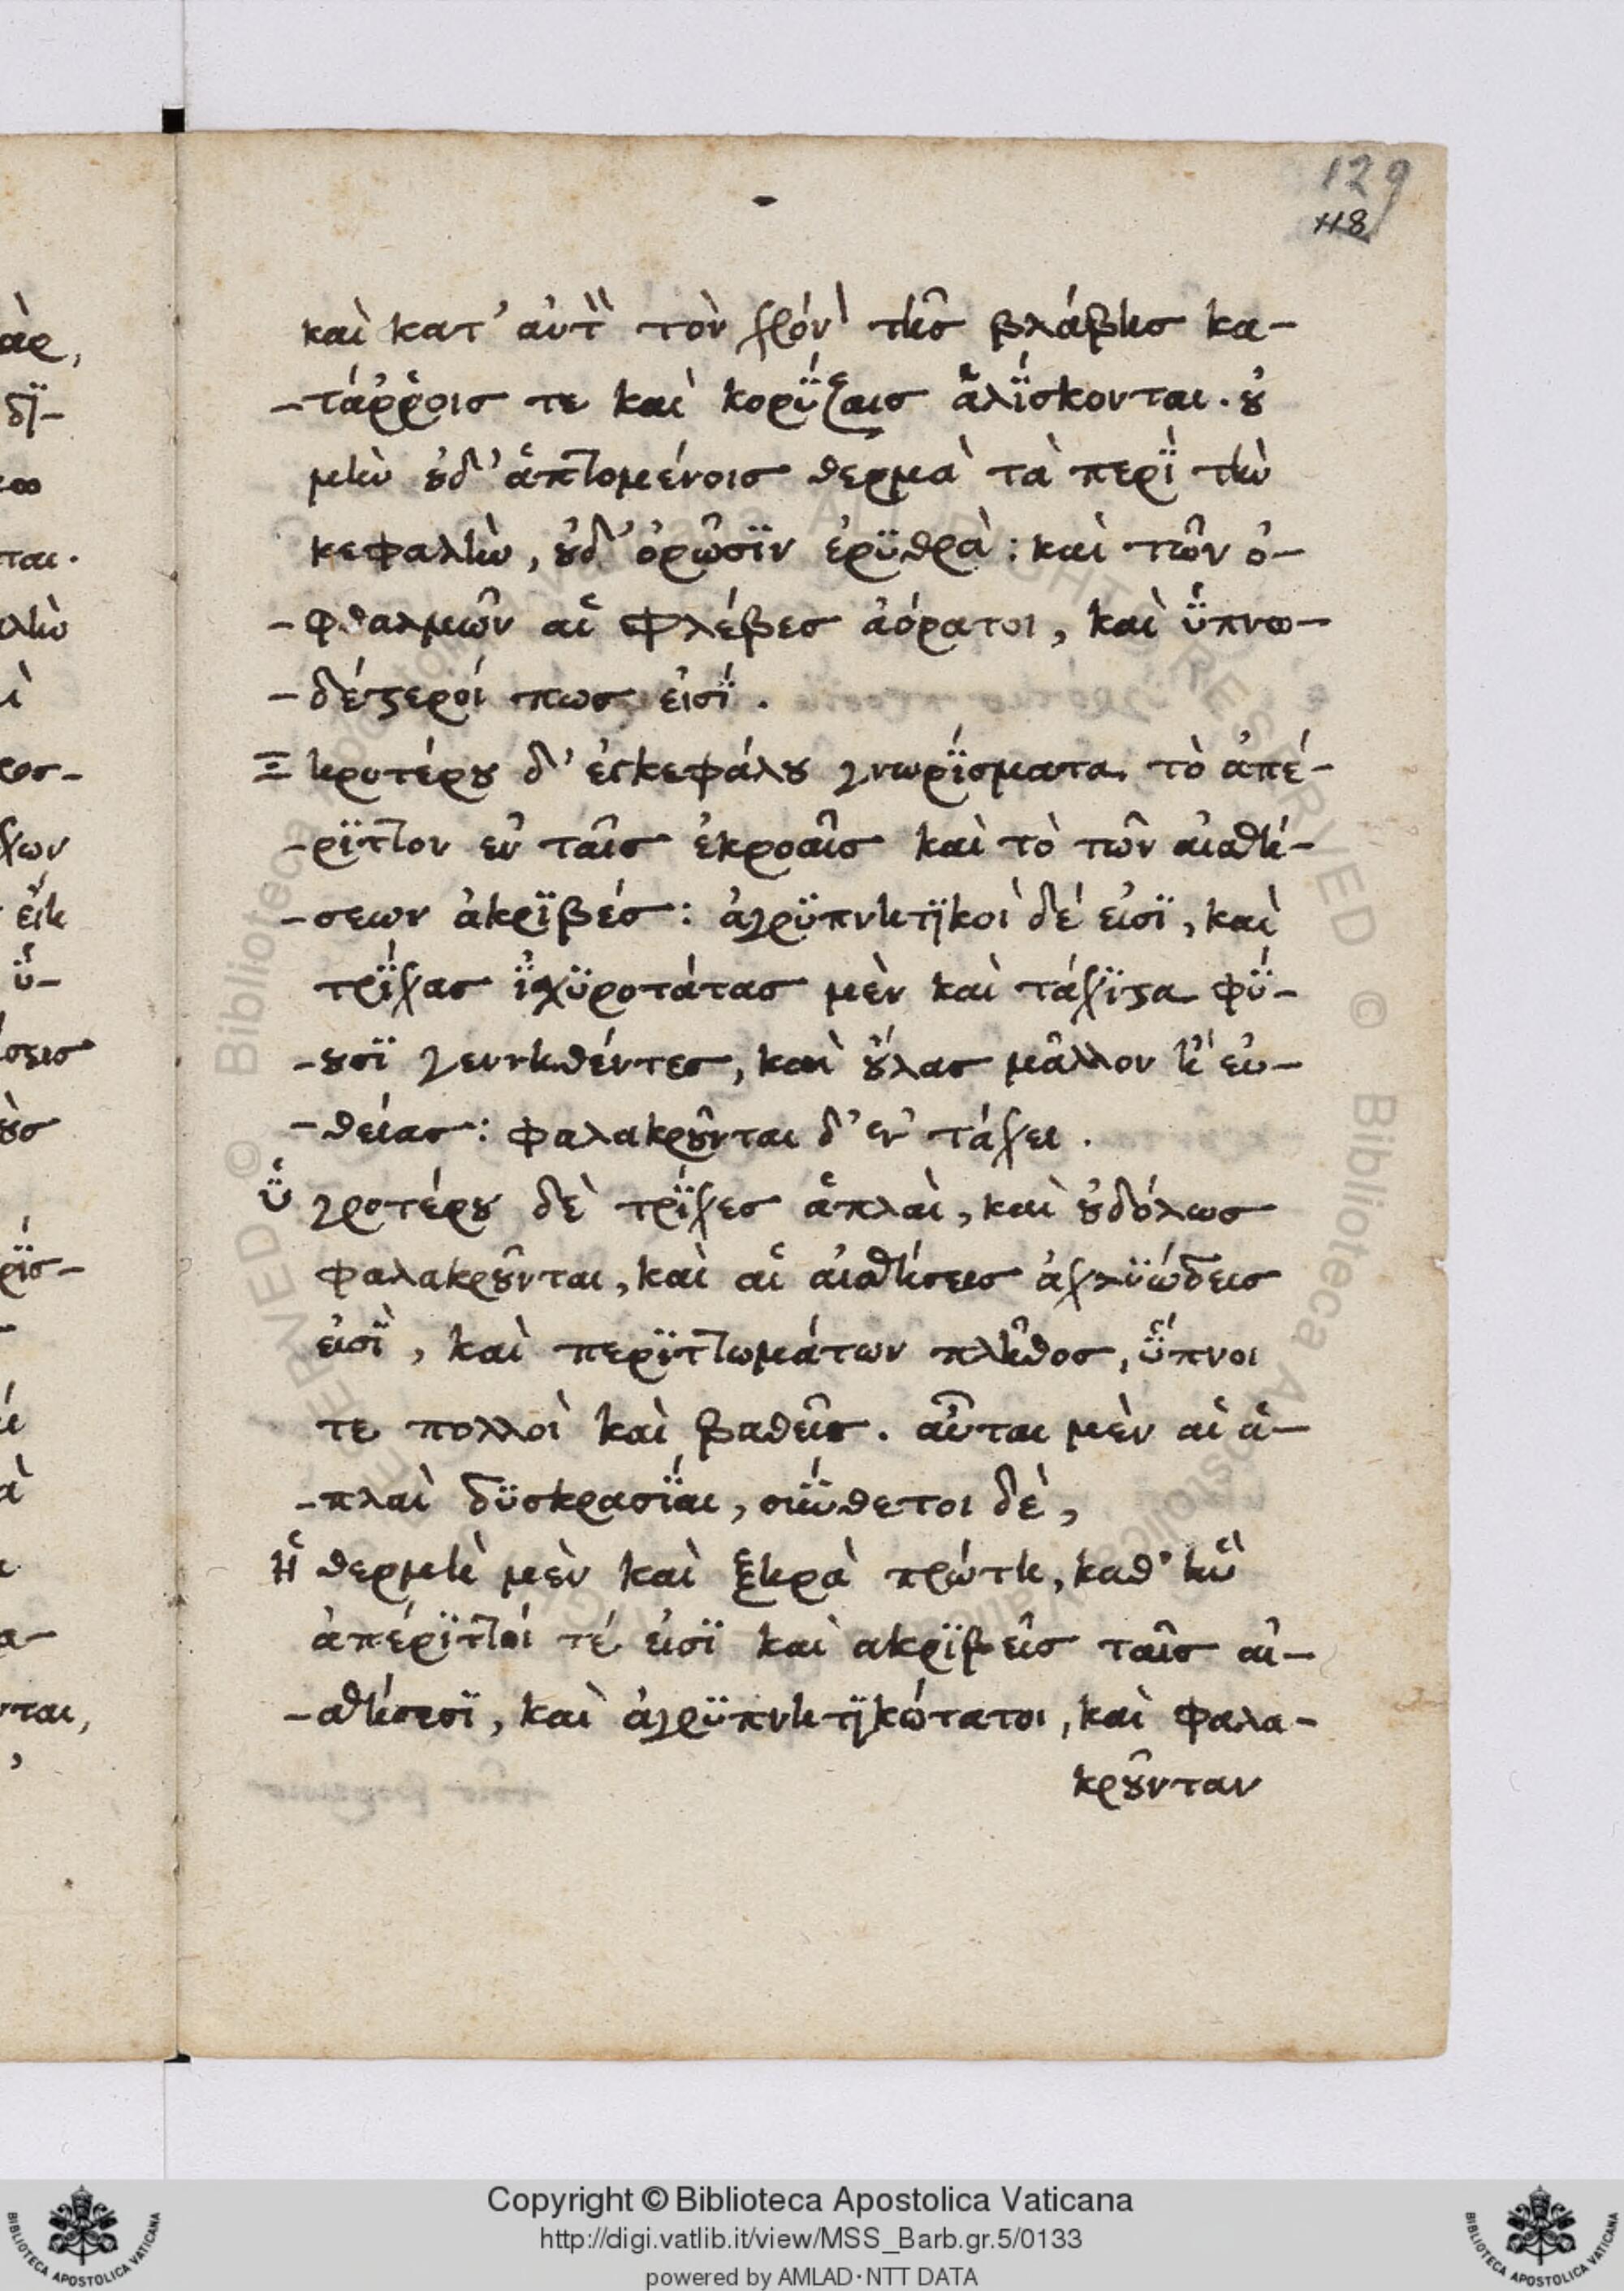 129
118
καὶ κατ' αὐτ τὸν χρόν τῆς βλάβης κα-
-τάῤῥοις τε καὶ κορΰζαις ἁλΐσκονται. ȣ̓
μὴν ȣ̓δ' ἁπτομένοις θερμὰ τὰ περῒ τὴν
κεφαλὴν, ȣ̓δ' ὁρῶσϊν ἐρϋθρὰ: καὶ τῶν ὀ-
-φθαλμῶν αἱ φλέβες ἀόρατοι, καὶ ὕπνω-
-δέϛεροί πως εἰσΐ.
Ξηροτέρȣ δ' ἐγκεφάλȣ γνωρΐσματα τὸ ἀπέ-
-ρϊττον ἐν ταῖς ἐκροαῖς καὶ τὸ τῶν αἰσθή-
-σεων ἀκρϊβές: ἀγρϋπνητϊκοὶ δέ εἰσϊ, καὶ
τρΐχας ἰσχϋροτάτας μὲν καὶ τάχϊϛα φΰ-
-ȣσϊ γεννηθέντες, καὶ ȣ̓́λας μᾶλλον ἢ εὐ-
-θείας: φαλακρȣ͂νται δ' ἐν τάχει.
ὑγροτέρȣ δὲ τρΐχες ἁπλαὶ, καὶ ȣ̓δόλως
φαλακρȣ͂νται, καὶ αἱ αἰσθήσεις ἀχλϋώδεις
εἰσῒ, καὶ περϊττωμάτων πλῆθος, ὕπνοι
τε πολλοὶ καὶ βαθεῖς. αὗται μὲν αἱ ἁ-
-πλαὶ δϋσκρασΐαι, σύνθετοι δέ,
ἡ θερμὴ μὲν καὶ ξηρὰ πρώτη, καθ' ἣν
ἀπέρϊττοί τέ εἰσϊ καὶ ακρϊβεῖς ταῖς αἰ-
-σθήσεσϊ, καὶ ἀγρϋπνητϊκώτατοι, καὶ φαλα-
κρȣ͂νται
Copyright © Biblioteca Apostolica Vaticana
http://digi.vatlib.it/view/MSS_Barb.gr.5/0133
powered by AMLAD·NTT DATA